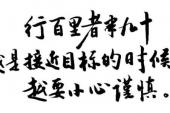 行百里者半九十
越是接近目标的时候
越要小心谨慎。